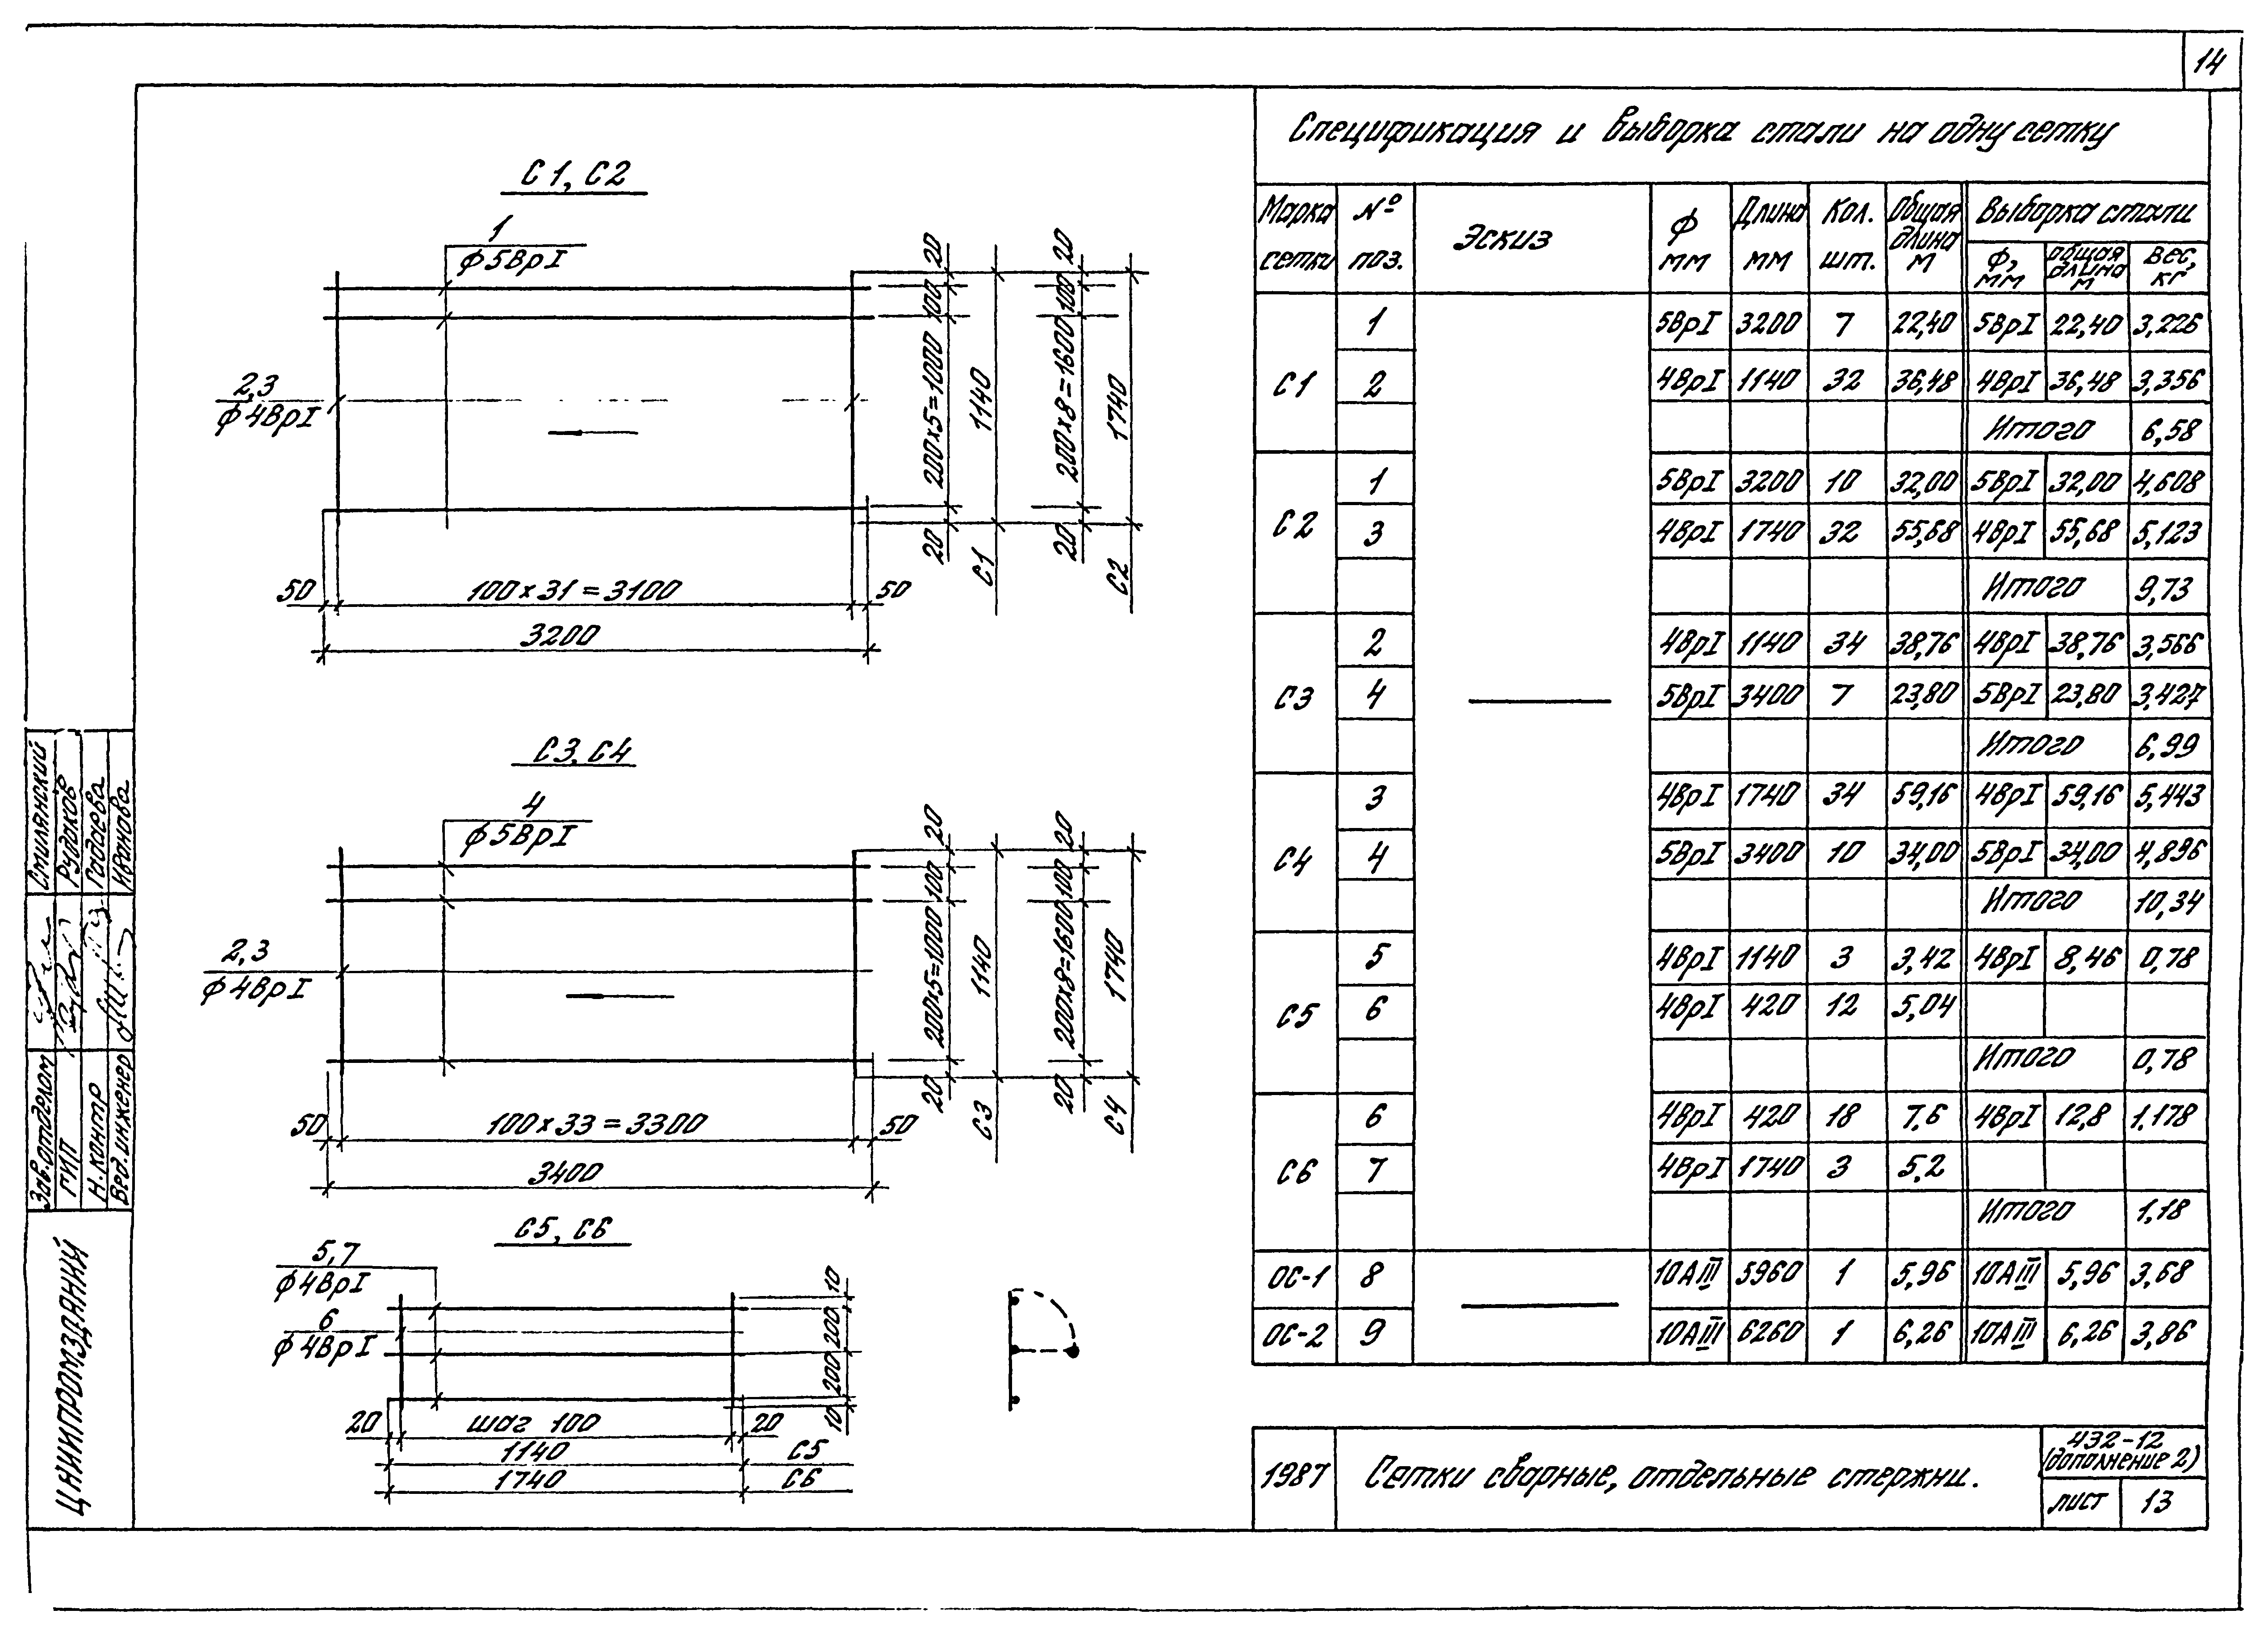 14
С1, С2
1
ф5ВрI
2,3
ф4ВрI
20
100
200х5=1000
20
1140
С1
20
100
200х8=1600
20
1740
С2
50
100х31=3100
50
3200
С3, С4
4
ф5ВрI
2,3
ф4ВрI
20
100
200х5=1000
20
1140
С3
20
100
200х8=1600
20
1740
С4
50
100х33=3300
50
3400
С5, С6
5,7
ф4ВрI
6
ф4ВрI
10
200
200
10
20 шаг 100 20
1140 С5
1740 С6
Спецификация и выборка стали на одну сетку
Марка сетки № поз. Эскиз Ф мм Длина мм Кол. шт. Общая длина м Выборка стали
Ф, мм общая длина м Вес, кг
С1
1 5ВрI 3200 7 22,40 5ВрI 22,40 3,226
2 4ВрI 1140 32 36,48 4ВрI 36,48 3,356
Итого 6,58
С2
1 5ВрI 3200 10 32,00 5ВрI 32,00 4,608
3 4ВрI 1740 32 55,68 4ВрI 55,68 5,123
Итого 9,73
С3
2 4ВрI 1140 34 38,76 4ВрI 38,76 3,566
4 5ВрI 3400 7 23,80 5ВрI 23,80 3,427
Итого 6,99
С4
3 4ВрI 1740 34 59,16 4ВрI 59,16 5,443
4 5ВрI 3400 10 34,00 5ВрI 34,00 4,896
Итого 10,34
С5
5 4ВрI 1140 3 3,42 4ВрI 8,46 0,78
6 4ВрI 420 12 5,04
Итого 0,78
С6
6 4ВрI 420 18 7,6 4ВрI 12,8 1.178
7 4ВрI 1740 3 5,2
Итого 1,18
ОС-1 8 10АIII 5960 1 5,96 10АIII 5,96 3,68
ОС-2 9 10АIII 6260 1 6,26 10АIII 6,26 3,86
1987 Сетки сварные, отдельные стержни.
432-12
(дополнение 2)
лист 13
Зав.отделом Смилянский
ГИП Рудаков
Н.контр Гадаева
Вед.инженер Иванова
ЦНИИПРОМЗДАНИЙ